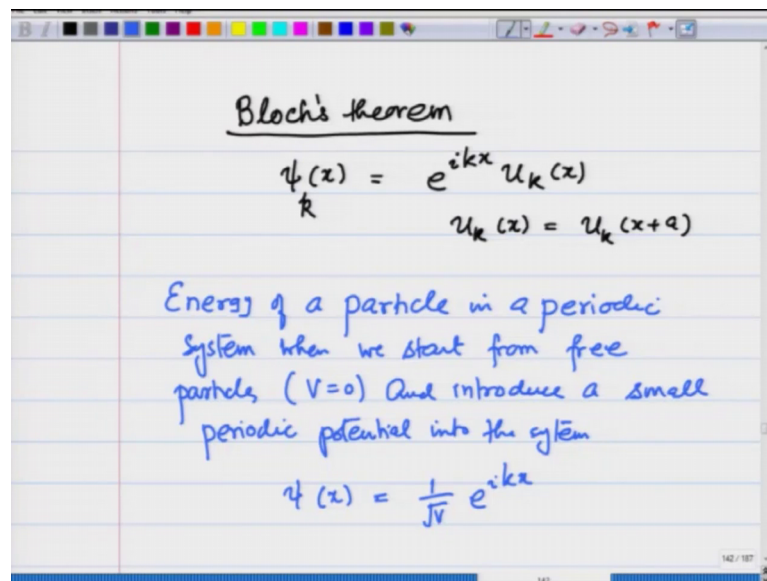 Bloch's theorem
ψ_k(x) = e^{ikx} u_k(x)
u_k(x) = u_k(x+a)
Energy of a particle in a periodic
system when we start from free
particle, (V=0) And introduce a small
periodic potential into the sytem
ψ(x) = 1/√V e^{ikx}
142 / 187